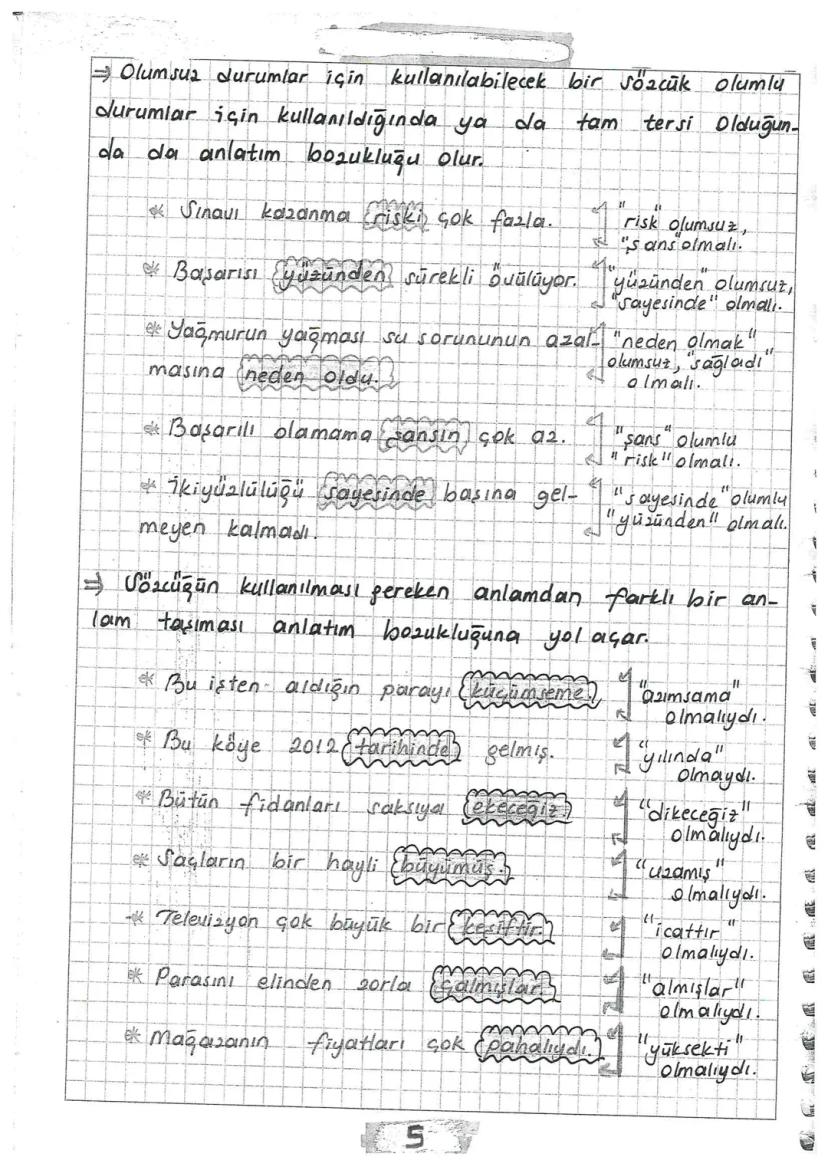 ⇒ Olumsuz durumlar için kullanılabilecek bir sözcük olumlu
durumlar için kullanıldığında ya da tam tersi olduğun-
da da anlatım bozukluğu olur.
* Sınavı kazanma riski çok fazla.
"risk" olumsuz,
"şans" olmalı.
* Başarısı yüzünden sürekli övülüyor.
"yüzünden" olumsuz,
"sayesinde" olmalı.
* Yağmurun yağması su sorununun azal-
masına neden oldu.
"neden olmak"
olumsuz, "sağladı"
olmalı.
* Başarılı olamama şansın çok az.
"şans" olumlu
"risk" olmalı.
* İkiyüzlülüğü sayesinde başına gel-
meyen kalmadı.
"sayesinde" olumlu
"yüzünden" olmalı.
⇒ Sözcüğün kullanılması gereken anlamdan farklı bir an-
lam taşıması anlatım bozukluğuna yol açar.
* Bu işten aldığın parayı küçümseme.
"azımsama"
olmalıydı.
* Bu köye 2012 tarihinde gelmiş.
"yılında"
olmaydı.
* Bütün fidanları saksıya ekeceğiz.
"dikeceğiz"
olmalıydı.
* Saçların bir hayli büyümüş.
"uzamış"
olmalıydı.
* Televizyon çok büyük bir keşiftir.
"icattır"
olmalıydı.
* Parasını elinden zorla çalmışlar.
"almışlar"
olmalıydı.
* Mağazanın fiyatları çok pahalıydı.
"yüksekti"
olmalıydı.
5